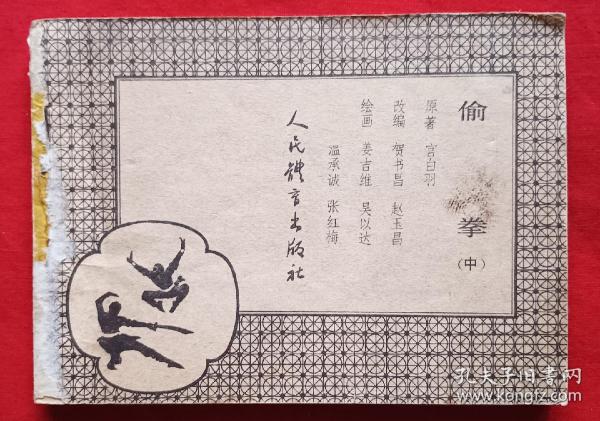 偷拳
（中）
原著 宫白羽
改编 贺书昌 赵玉昌
绘画 姜吉维 吴以达
温承诚 张红梅
人民體育出版社
孔夫子旧书网
www.kongfz.com